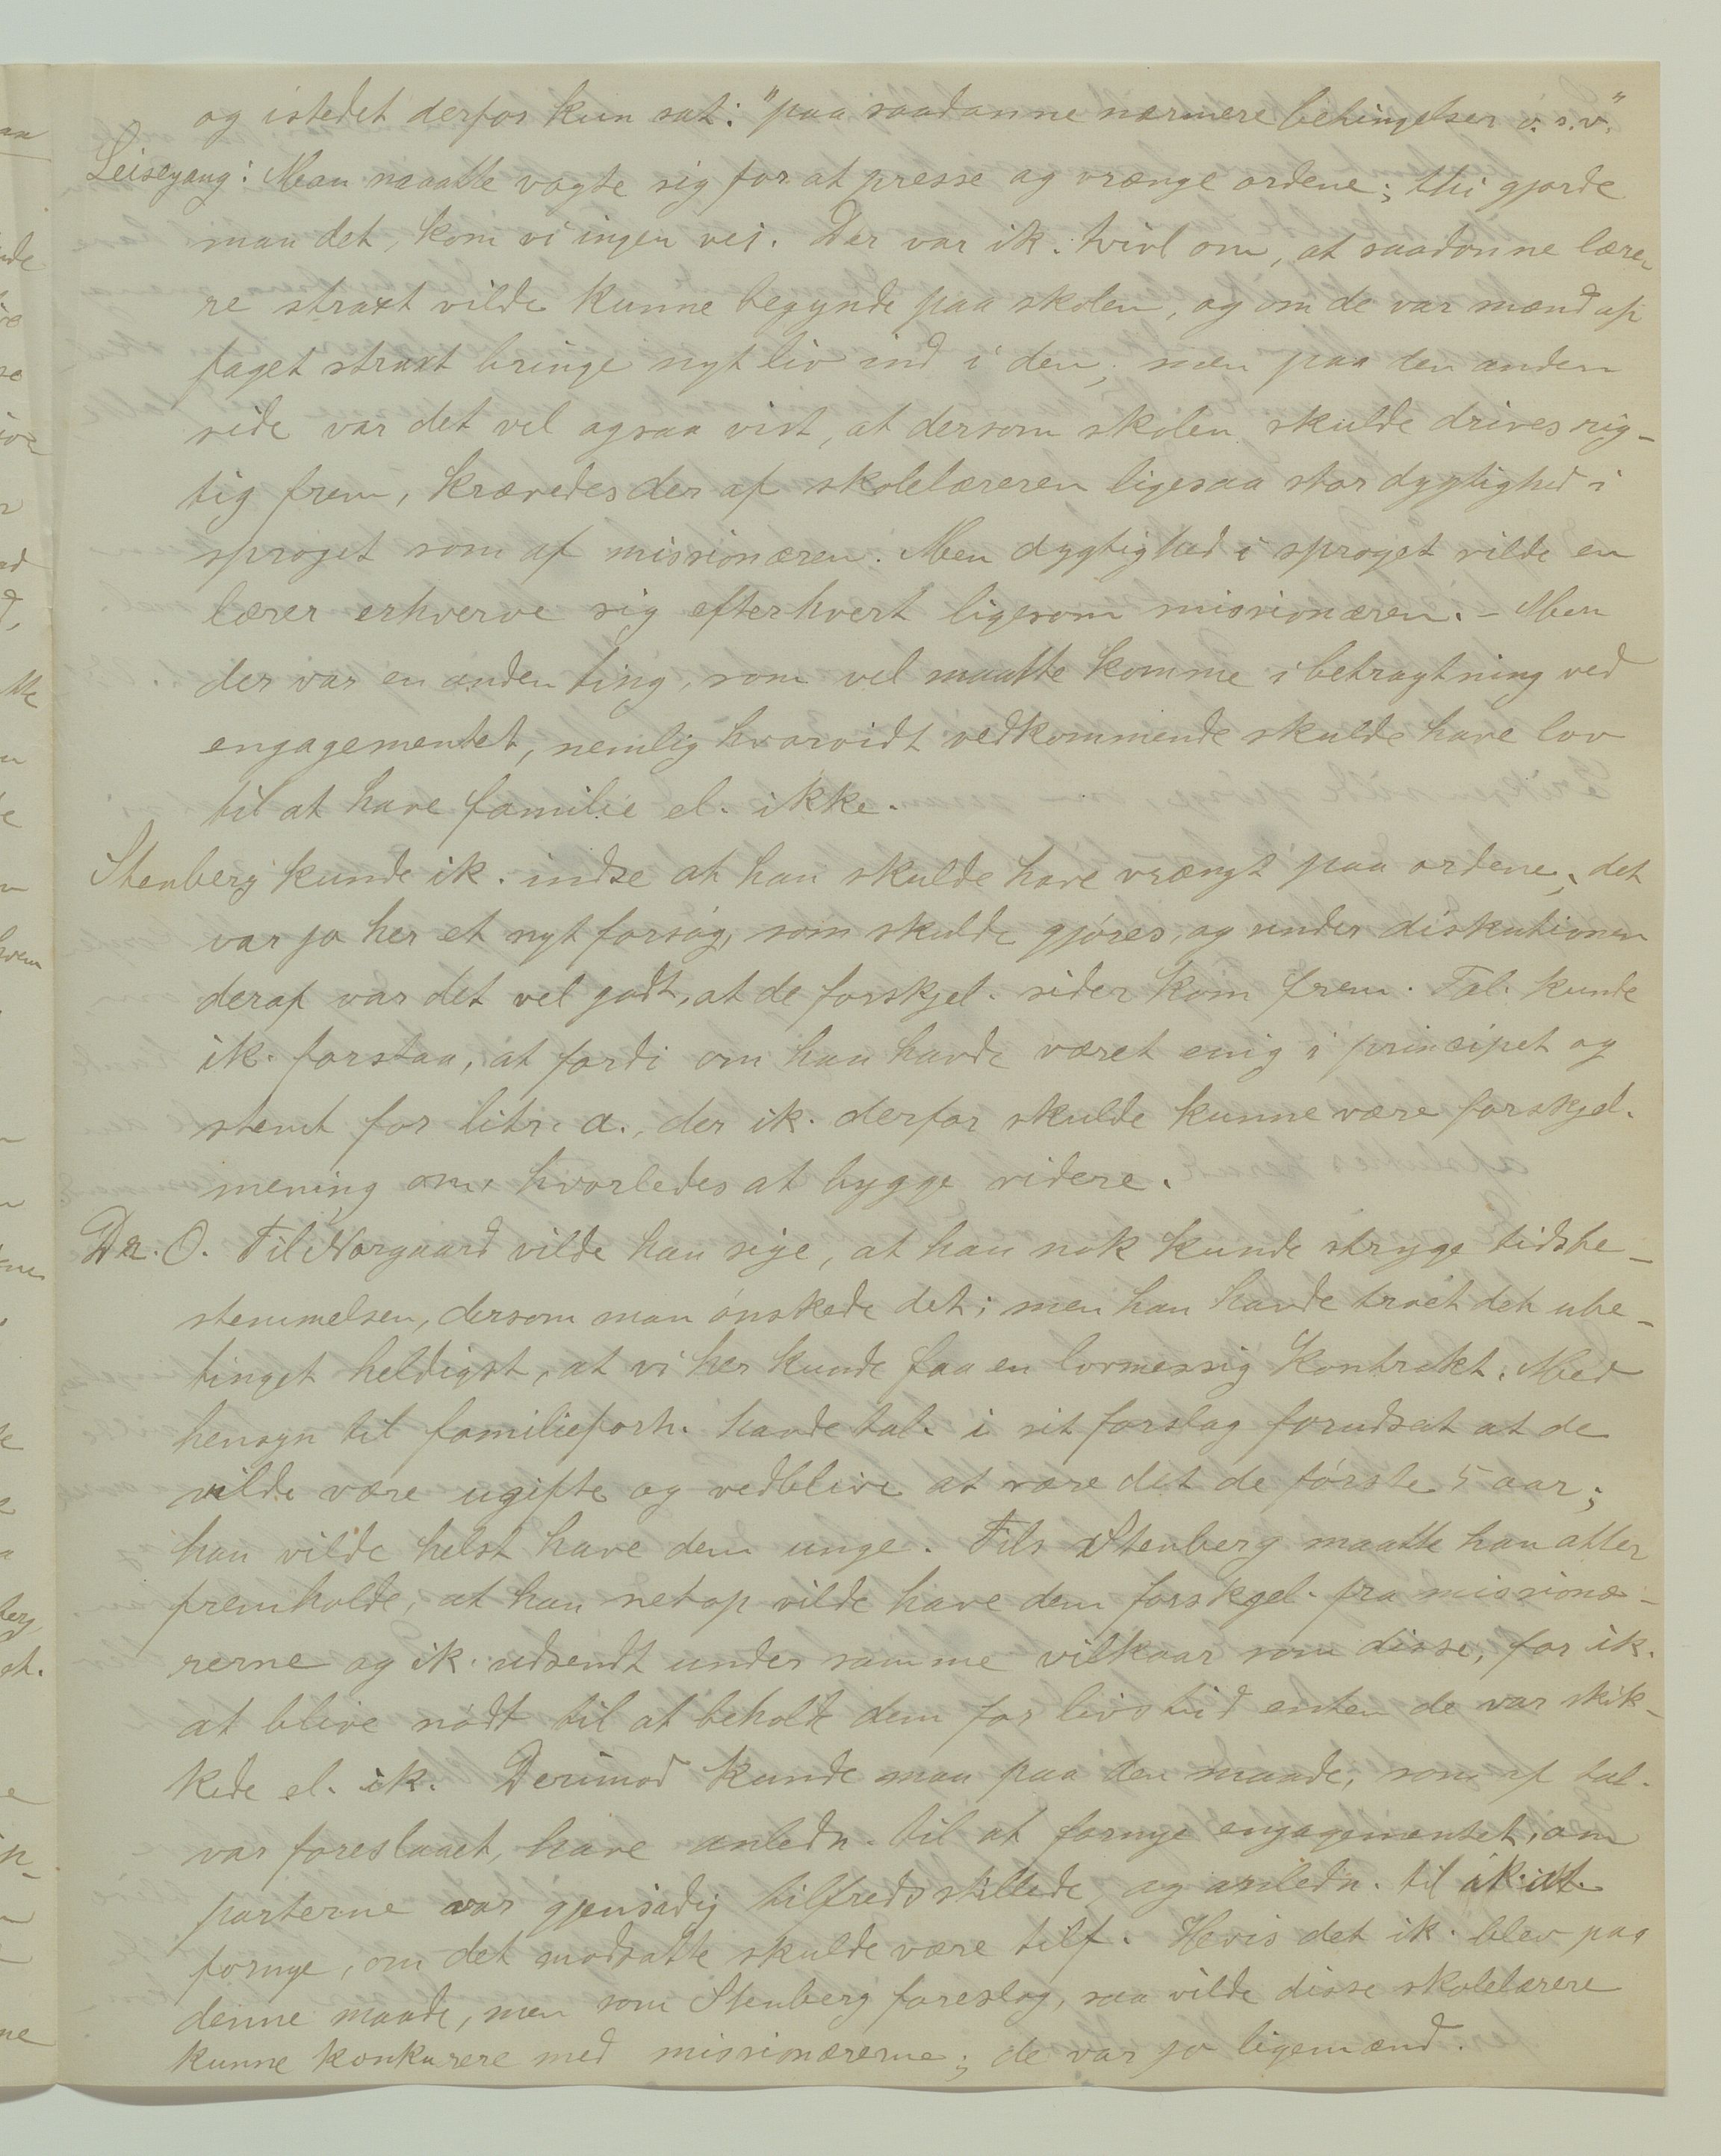 og istedet derfor kun sat: "paa saadanne nærmere betingelser o. s. v."
Leisegang: Man maatte vogte sig for at presse og vrænge ordene; thi gjorde
man det, kom vi ingen vei. Der var ik. tvivl om, at saadanne lære
re straxt vilde kunne begynde paa skolen, og om de var mænd af
faget straxt bringe nyt liv ind i den; men paa den anden
side var det vel ogsaa vist, at dersom skolen skulde drives rig-
tig frem, krævedes der af skolelæreren ligesaa stor dygtighed i
sproget som af missionæren. Men dygtighed i sproget vilde en
lærer erhverve sig efterhvert ligesom missionæren. - Men
der var en anden ting, som vel maatte komme i betragtning ved
engagementet, nemlig hvorvidt vedkommende skulde have lov
til at have familie el. ikke.
Stenberg kunde ik. indse at han skulde have vrængt paa ordene; det
var jo her et nyt forsøg, som skulde gjøres, og under diskutionen
deraf var det vel godt, at de forskjel. sider kom frem. Tal. kunde
ik. forstaa, at fordi om han havde været enig i princippet og
stemt for litr. a., der ik. derfor skulde kunne være forskjel.
mening om, hvorledes at bygge videre.
Dr. O. Til Norgaard vilde han sige, at han nok kunde stryge tidsbe-
stemmelsen, dersom man ønskede det; men han havde troet det ube-
tinget heldigst, at vi her kunde faa en lovmessig kontrakt. Med
hensyn til familieforh. havde tal. i sit forslag forudsat at de
vilde være ugifte og vedblive at være det de første 5 aar;
han vilde helst have dem unge. Til Stenberg maatte han atter
fremholde, at han netop vilde have dem forskjel. fra missionæ-
rerne og ik. udsendt under samme vilkaar som disse, for ik.
at blive nødt til at beholde dem for livstid enten de var skik-
kede el. ik. Derimod kunde man paa den maade, som af tal.
var foreslaaet, have anledn. til at fornye engagementet, om
parterne var gjensidig tilfredsstillede, og anledn. til ik. at
fornye, om det modsatte skulde være tilf. Hvis det ik. blev paa
denne maade, men som Stenberg foreslog, saa vilde disse skolelærere
kunne konkurere med missionærerne; de var jo ligemænd.